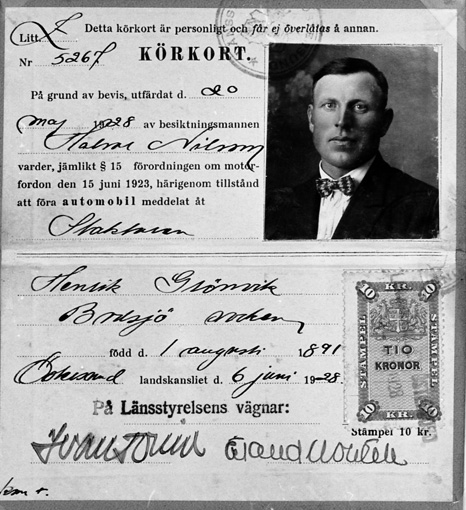 Detta körkort är personligt och får ej överlåtas å annan.
Litt. Z
Nr 5267
KÖRKORT.
På grund av bevis, utfärdat d. 20
maj 1928 av besiktningsmannen
Halvar Nilsson
varder, jämlikt § 15 förordningen om motor-
fordon den 15 juni 1923, härigenom tillstånd
att föra automobil meddelat åt
Henrik Grönvik
född d. 1 augusti 1891
Östersund landskansliet d. 6 juni 1928.
På Länsstyrelsens vägnar:
10 KR. 10
STÄMPEL STÄMPEL
TIO
KRONOR
10 KR. 10
Stämpel 10 kr.